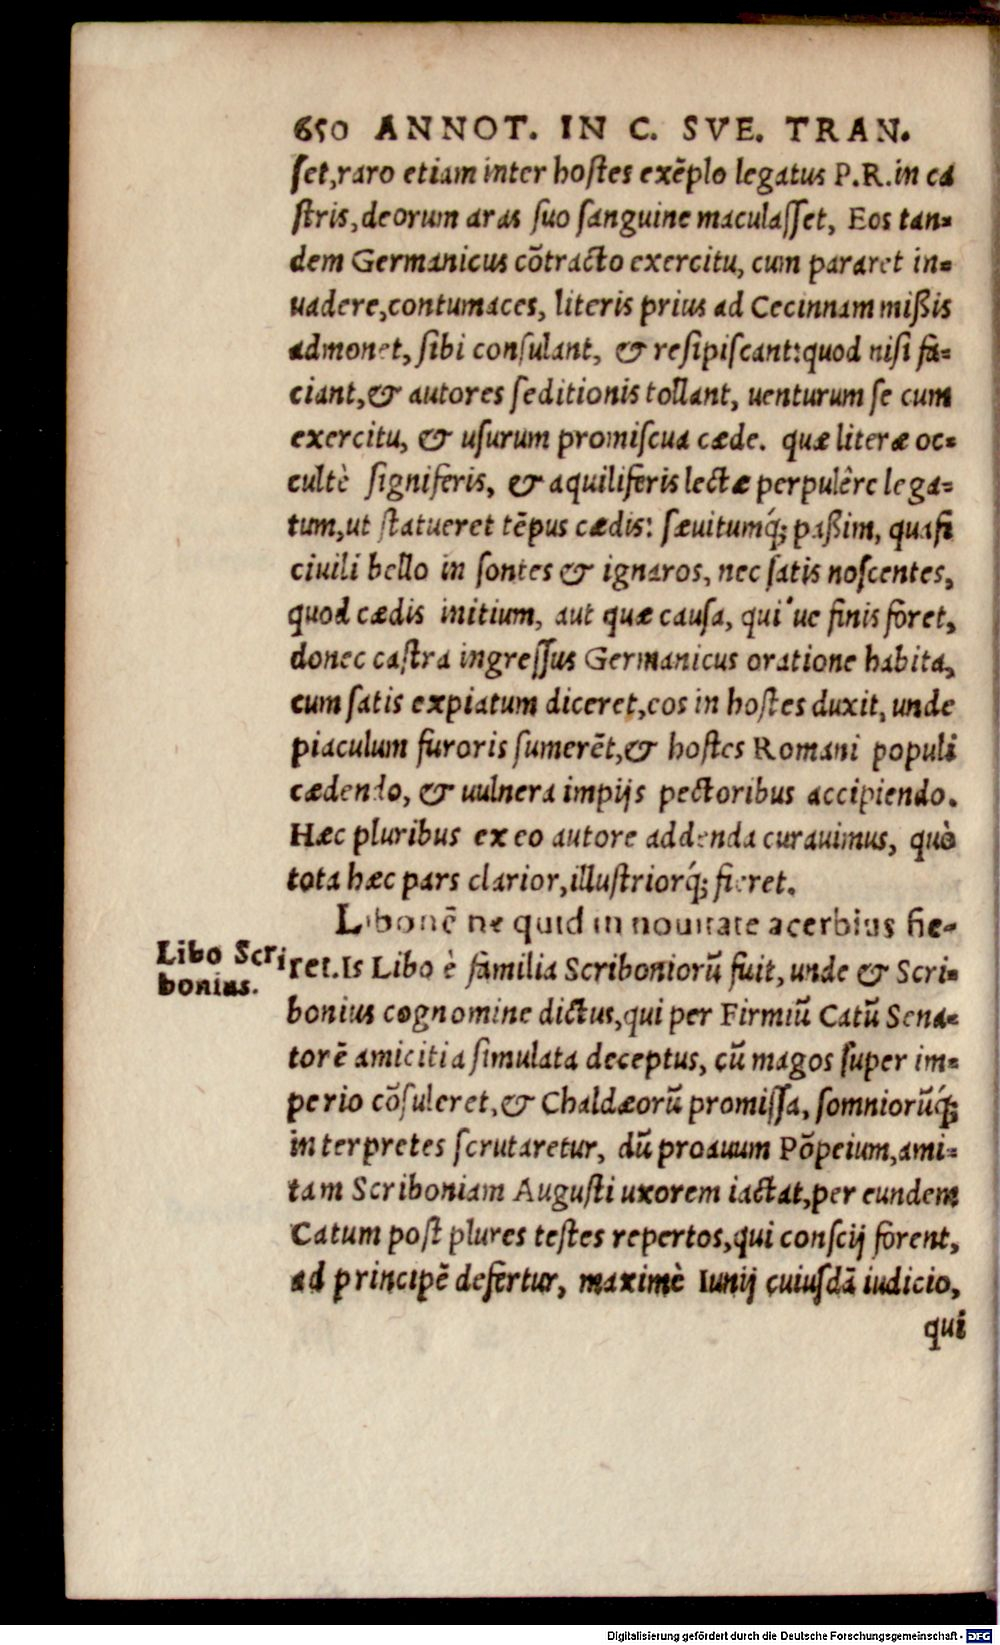 650 ANNOT. IN C. SVE. TRAN.
ſet,raro etiam inter hoſtes exẽplo legatus P.R.in ca
ſtris,deorum aras ſuo ſanguine maculaſſet, Eos tan=
dem Germanicus cõtracto exercitu, cum pararet in=
uadere,contumaces, literis prius ad Cecinnam mißis
admonet, ſibi conſulant, & reſipiſcant:quod niſi fa=
ciant,& autores ſeditionis tollant, uenturum ſe cum
exercitu, & uſurum promiſcua cæde. quæ literæ oc=
cultè ſigniferis, & aquiliferis lectæ perpulêre lega=
tum,ut ſtatueret tẽpus cædis: ſæuitumq́; paßim, quaſi
ciuili bello in ſontes & ignaros, nec ſatis noſcentes,
quod cædis initium, aut quæ cauſa, qui'ue finis foret,
donec caſtra ingreſſus Germanicus oratione habita,
cum ſatis expiatum diceret,eos in hoſtes duxit, unde
piaculum furoris ſumerẽt,& hoſtes Romani populi
cædendo, & uulnera impijs pectoribus accipiendo.
Hæc pluribus ex eo autore addenda curauimus, quò
tota hæc pars clarior,illuſtriorq́; fieret.
Libonẽ ne quid in nouitate acerbius fie-
Libo Scri
bonius.
ret.Is Libo è familia Scriboniorũ fuit, unde & Scri=
bonius cognomine dictus,qui per Firmiũ Catũ Sena=
torẽ amicitia ſimulata deceptus, cũ magos ſuper im=
perio cõſuleret,& Chaldæorũ promiſſa, ſomniorũq́;
interpretes ſcrutaretur, dũ proauum Põpeium,ami=
tam Scriboniam Auguſti uxorem iactat,per eundem
Catum poſt plures teſtes repertos,qui conſcij forent,
ad principẽ defertur, maximè Iunij cuiuſdã iudicio,
qui
Digitalisierung gefördert durch die Deutsche Forschungsgemeinschaft - DFG